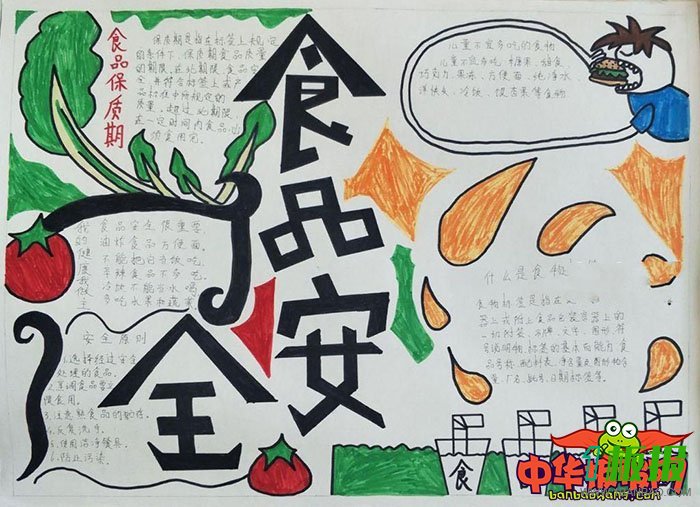 食品安全
食品保质期
保质期是指在标签上规定
的条件下,保质期食品质量
的期限。在此期限,食品完
全并符合标签上或产
品标准中所规定的
质量。超过此期限
在一定时间内食品
须食用完。
儿童不宜多吃的食物
儿童不宜多吃:糖果、甜食、
巧克力、果冻、方便面、纯净水
洋快餐、冷饮、银杏果等食物
我的健康我做主
食品安全很重要。
油炸食品方便面。
不能把它当饭吃。
辛辣食品不多吃。
冷饮不能当水喝
多吃水果和蔬菜
安全原则
1.选择经过安全
处理的食品。
2.烹调食品要
饿食用。
3.注意熟食品的贮存。
4.反复洗手。
5.使用洁净餐具。
6.防止污染。
什么是食物
食物标签是指在
器上或附上食品包装容器上的
一切附签、吊牌、文字、图形、符
号说明物。标签的基本功能为:食
品名称、配料表、净含量及固形物含
量、厂名、批号、日期标签等。
食
中华
报网
banbaowang.com